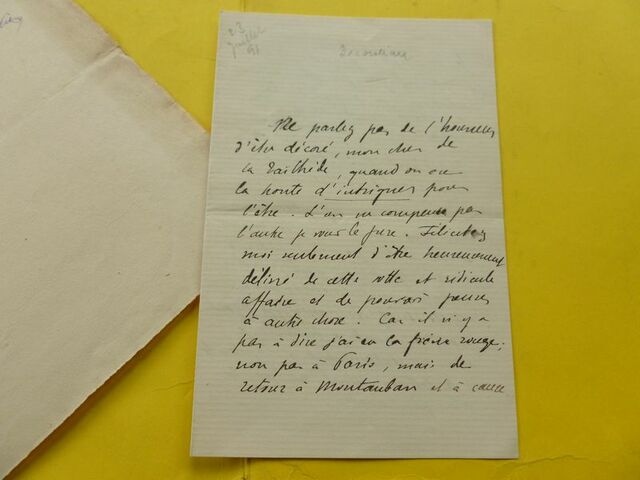 23
juillet
91
Ne parlez pas de l'honneur
d'être décoré, mon cher de
la Tailhède, quand on eu
la honte d'intriguer pour
l'être. L'un ne compense pas
l'autre je vous le jure. Félicitez
moi seulement d'être heureusement
délivré de cette sotte et ridicule
affaire et de pouvoir penser
à autre chose. Car il n'y a
pas à dire j'ai eu la fièvre rouge;
non pas à Paris, mais de
retour à Montauban et à cause